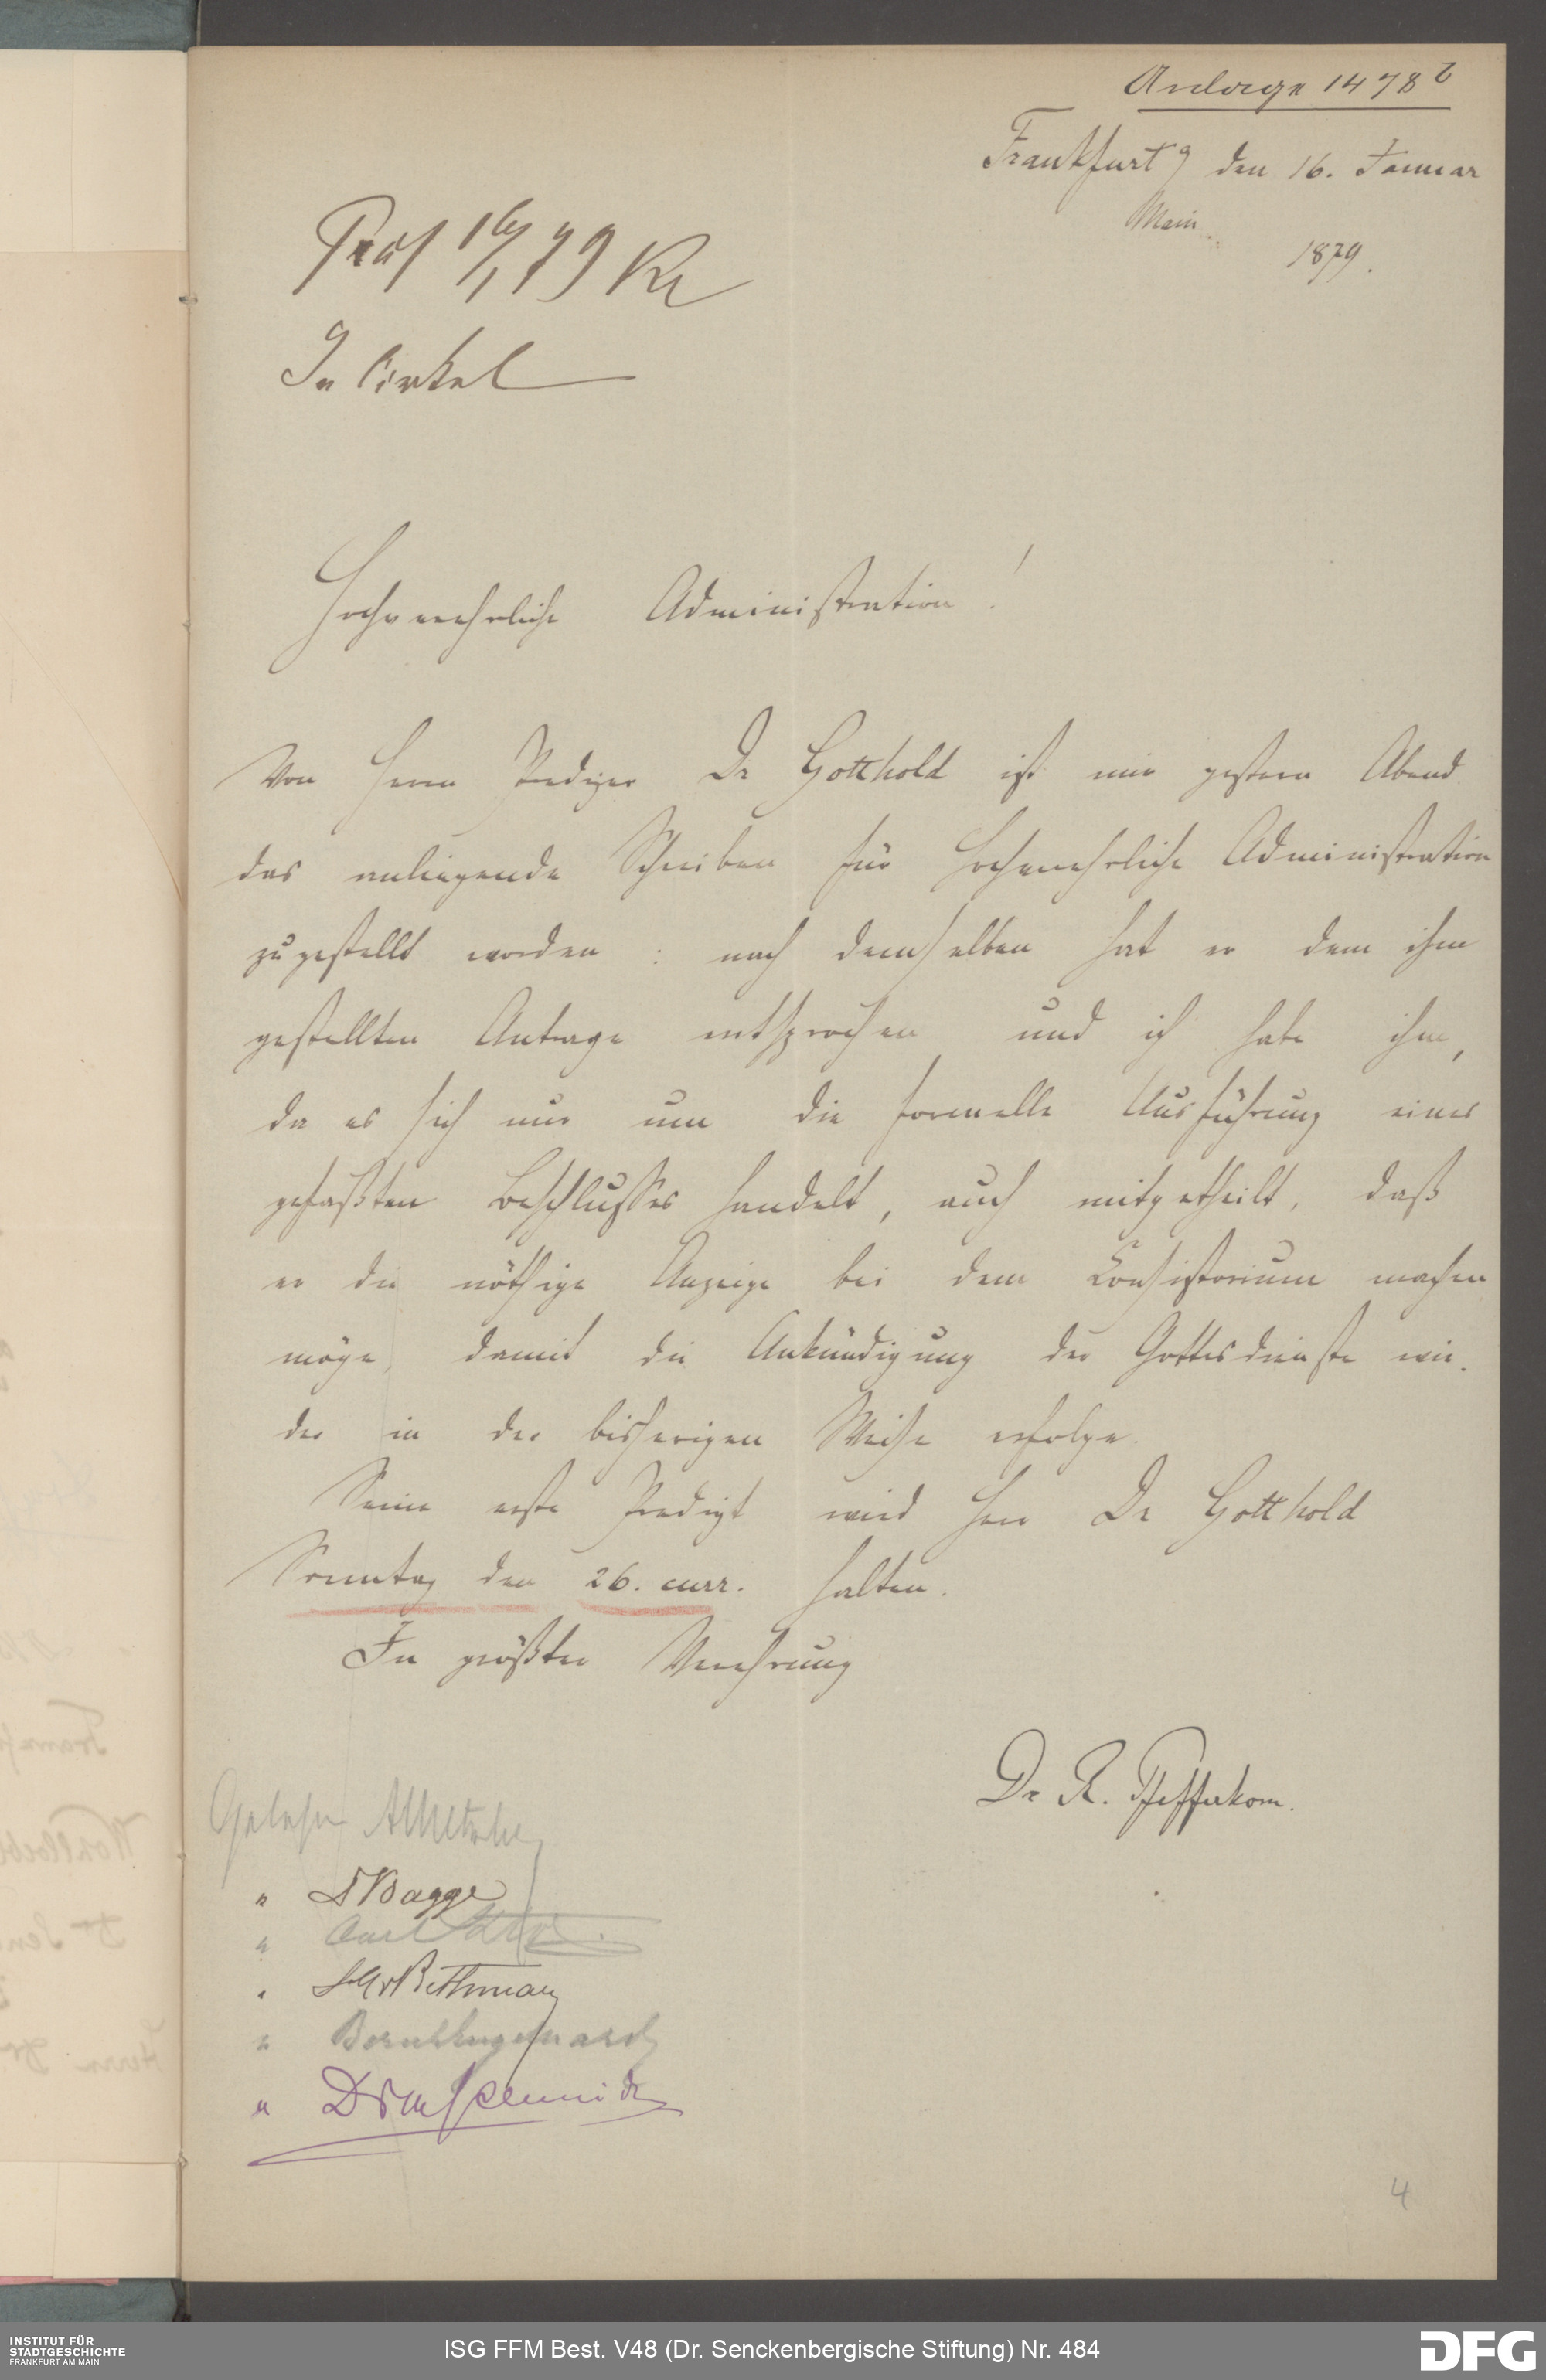 Anlage 1478 b
Frankfurt a den 16. Januar
Main
1879.
Präs 16/1 79 Kr
In Cirkel
Hochverehrliche Administration!
Von Herrn Prediger Dr Gotthold ist mir gestern Abend
das anliegende Schreiben für hochverehrliche Administration
zugestellt worden: nach demselben hat er dem ihm
gestellten Antrage entsprochen und ich habe ihm,
da es sich nur um die formelle Ausführung eines
gefaßten Beschlusses handelt, auch mitgetheilt, daß
er die nöthige Anzeige bei dem Consistorium machen
möge, damit die Ankündigung der Gottesdienste wie-
der in der bisherigen Weise erfolge.
Seine erste Predigt wird Herr Dr Gotthold
Sonntag den 26. curr. halten.
In größter Verehrung
Dr R. Pfefferkorn.
Gelesen
" Bagge
" Carl
" Bethmann
"
" Dr Schmidt
4
INSTITUT FÜR
STADTGESCHICHTE
FRANKFURT AM MAIN
ISG FFM Best. V48 (Dr. Senckenbergische Stiftung) Nr. 484
DFG